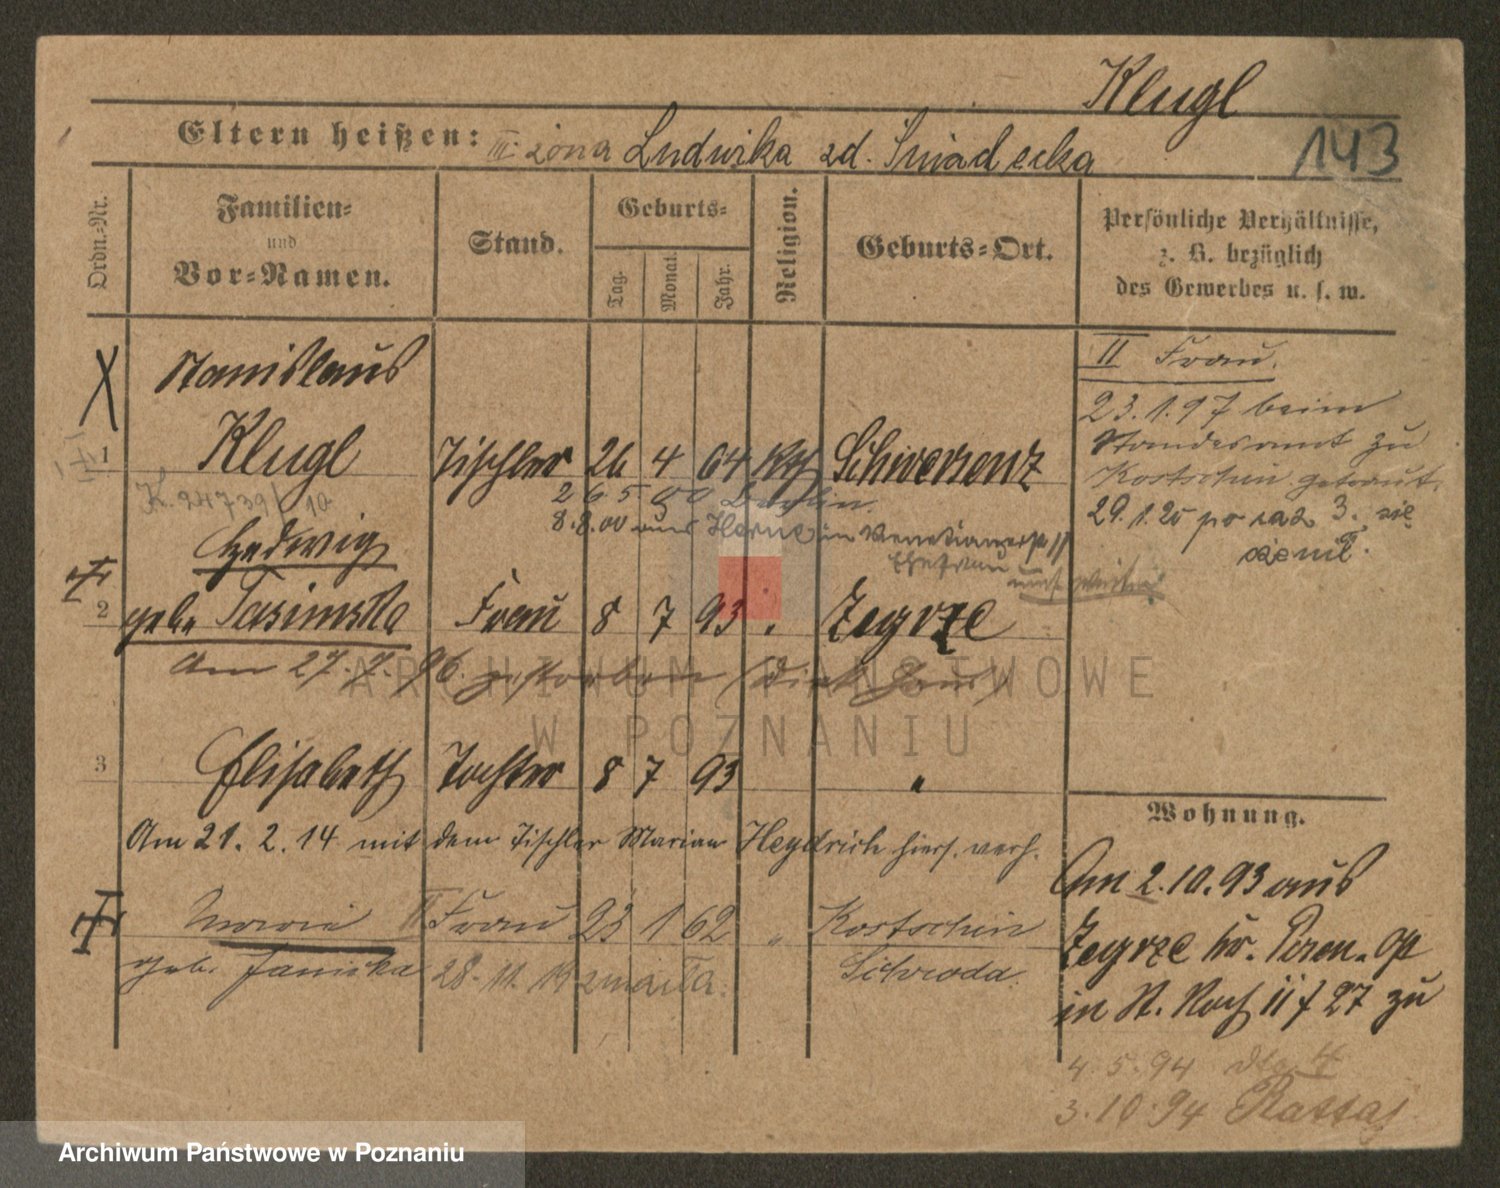 Klugl
Eltern heißen: III. żona Ludwika zd. Śniadecka
143
Ordn.-Nr.
Familien- und Vor-Namen.
Stand.
Geburts-
Tag. Monat. Jahr.
Religion.
Geburts-Ort.
Persönliche Verhältnisse,
z. B. bezüglich
des Gewerbes u. s. w.
Stanislaus
1 Klugl Tischler 26 4 64 Kth Schwersenz
K. 24739/10
26 5 00 Berlin.
8.8.00 aus Horne in Venetianerstr 11
Ehefrau
Hedwig
2 geb. Jasinska Frau 8 7 93 Zegrze
Am 27. 7. 96. gestorben
3 Elisabeth Tochter 8 7 93 "
Am 21. 2. 14 mit dem Tischler Marian Heydrich hier s. verh.
Maria II Frau 23 1 62 " Kostschin
geb. Janiska 28. 11. 19 zmarła. Schroda.
II Frau.
23.1.97 beim
Standesamt zu
Kostschin getraut.
29.1.20 po raz 3. się
ożenił.
Wohnung.
Am 2.10.93 aus
Zegrze
in St. Roch 11 f 27 zu
4.5.94 4
3.10.94 Rattaj
Archiwum Państwowe w Poznaniu
ARCHIWUM PAŃSTWOWE
W POZNANIU